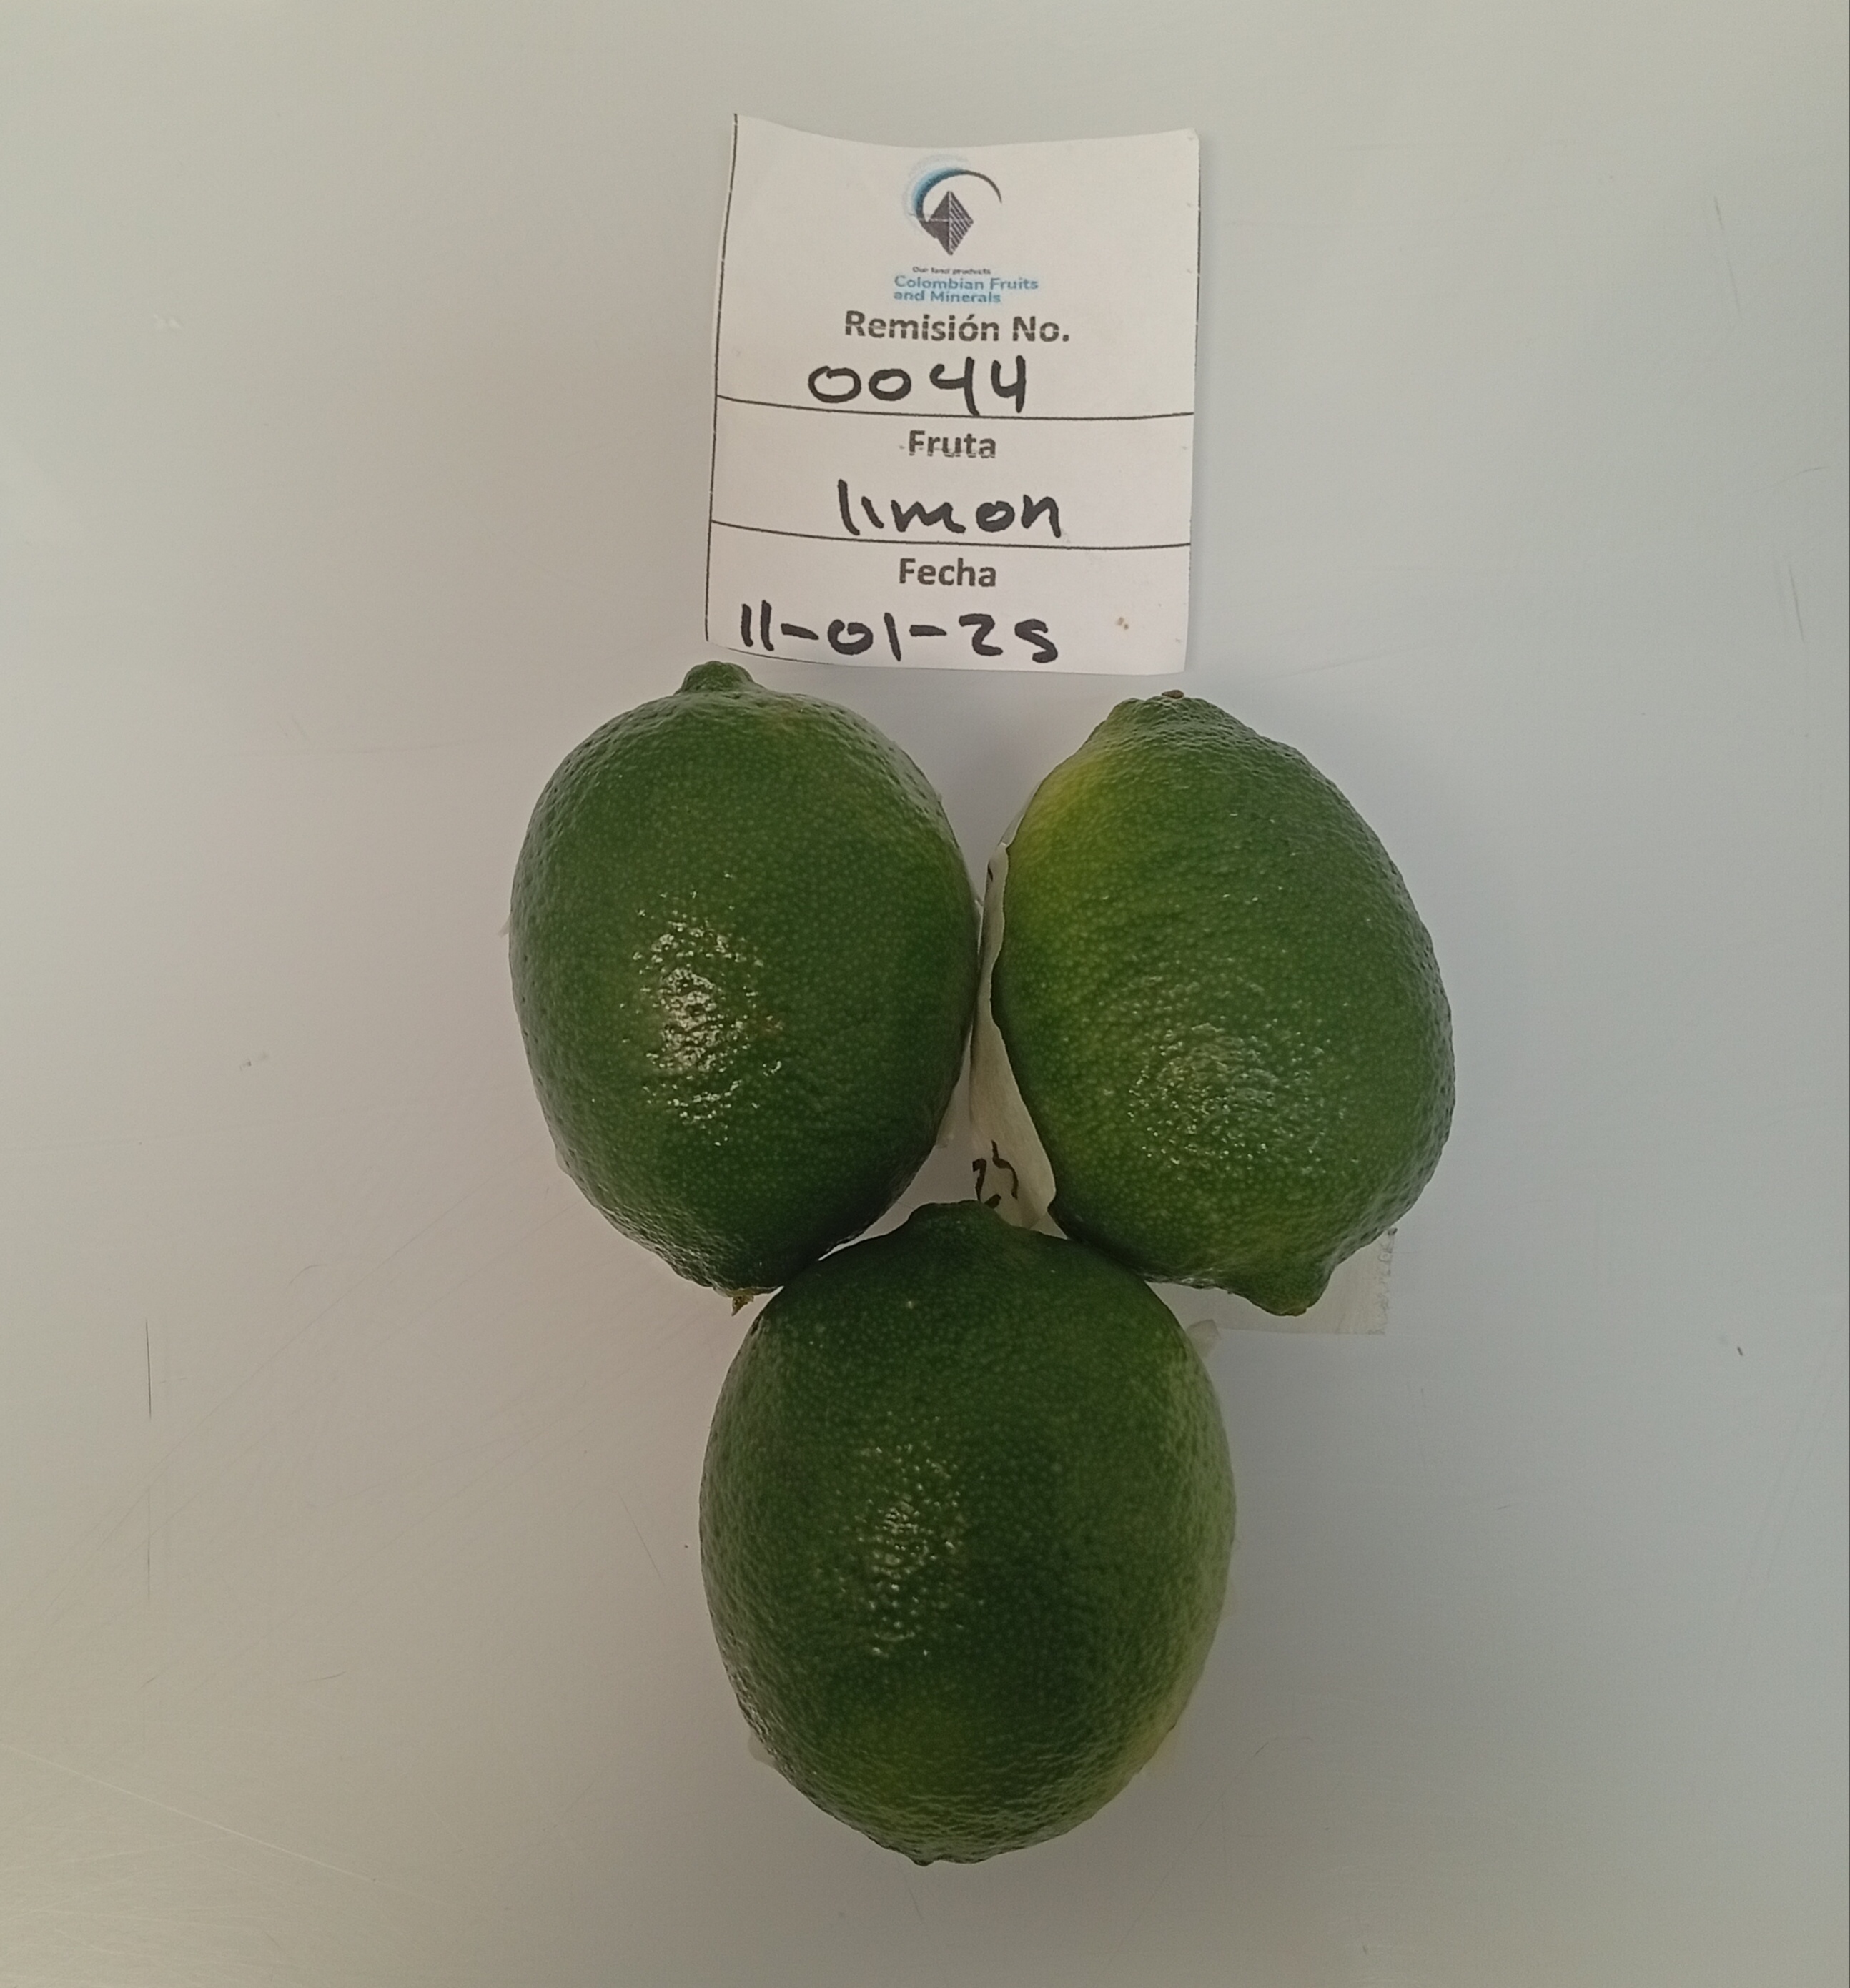 Our land products
Colombian Fruits
and Minerals
Remisión No.
0044
Fruta
limon
Fecha
11-01-25